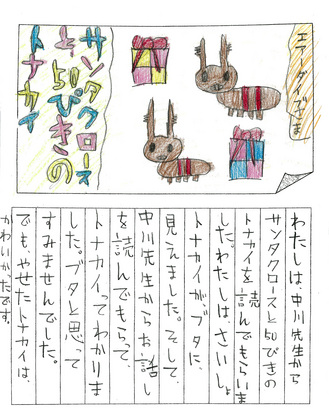 サンタクロース
と50ぴきの
トナカイ
わたしは、中川先生から
サンタクロースと50ぴきの
トナカイを読んでもらいま
した。わたしは、さいしょ
トナカイが、ブタに、
見えました。そして、
中川先生からお話し
を読んでもらって、
トナカイってわかりま
した。ブタと思って
すみませんでした。
でもやせたトナカイは、
かわいかったです。